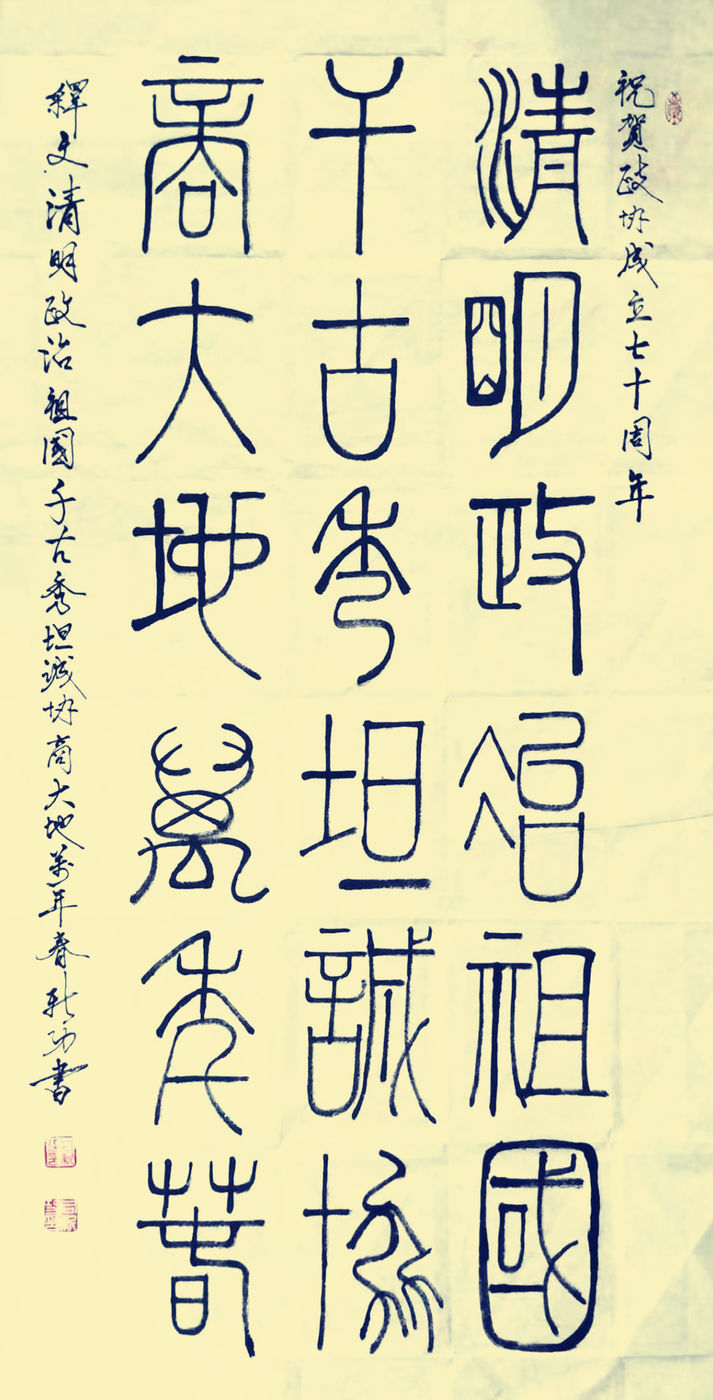 祝賀政协成立七十周年
清明政治祖國
千古秀坦誠協
商大地萬年春
釋文清明政治祖國千古秀坦誠协商大地萬年春 功書